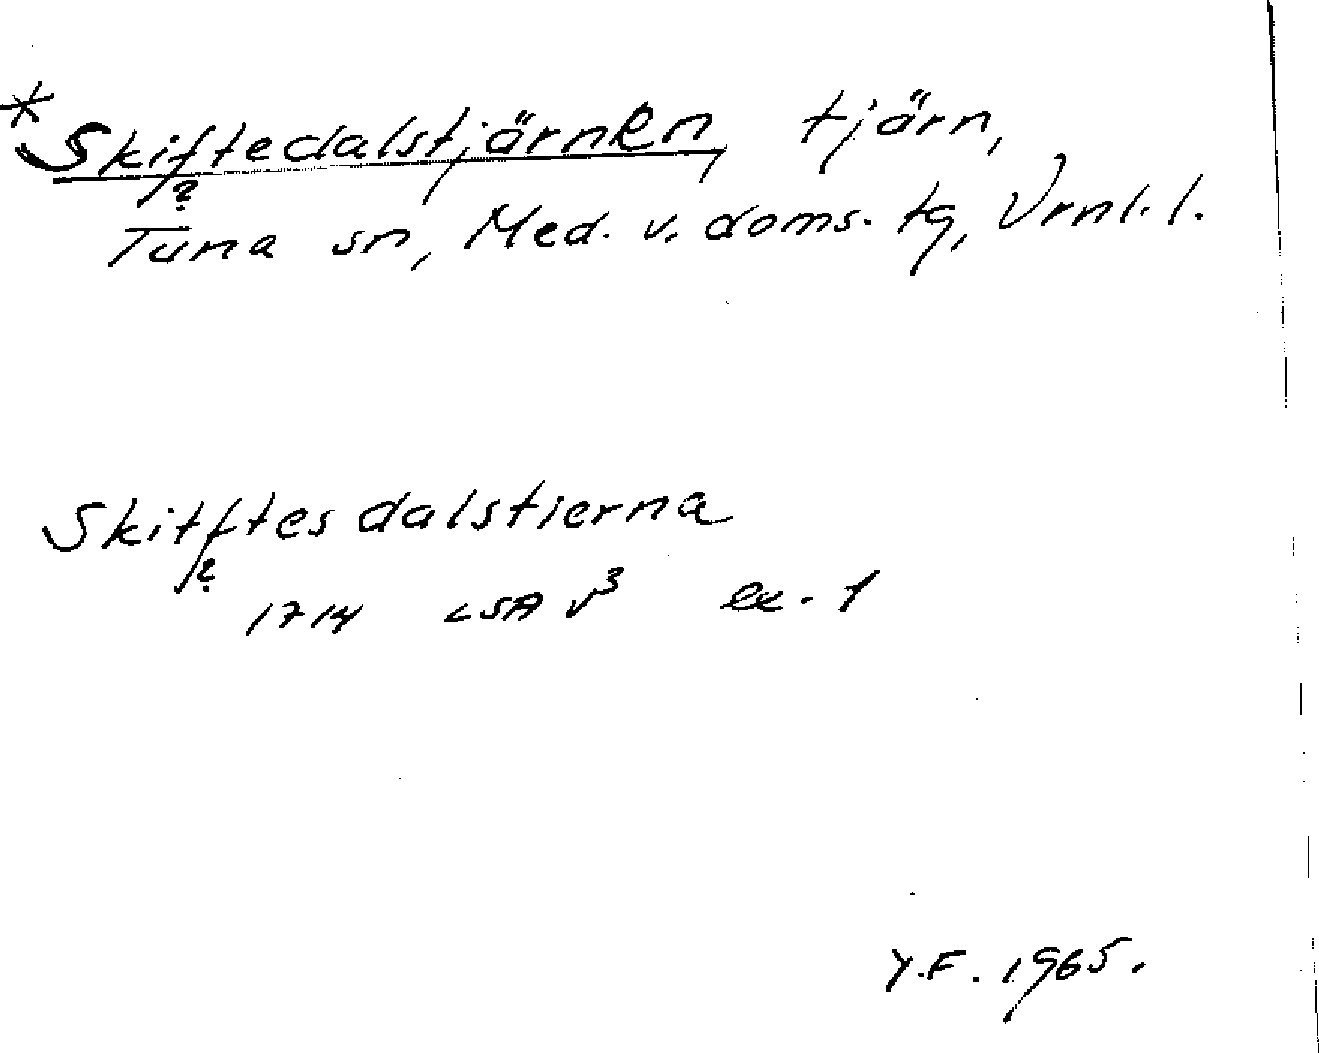 * Skiftedalstjärnen, tjärn,
?
Tuna sn, Med. v. doms. tg, Vrnl. l.
Skitftesdalstierna
?
1714 LSA v³ ex. 1
Y.F. 1965.